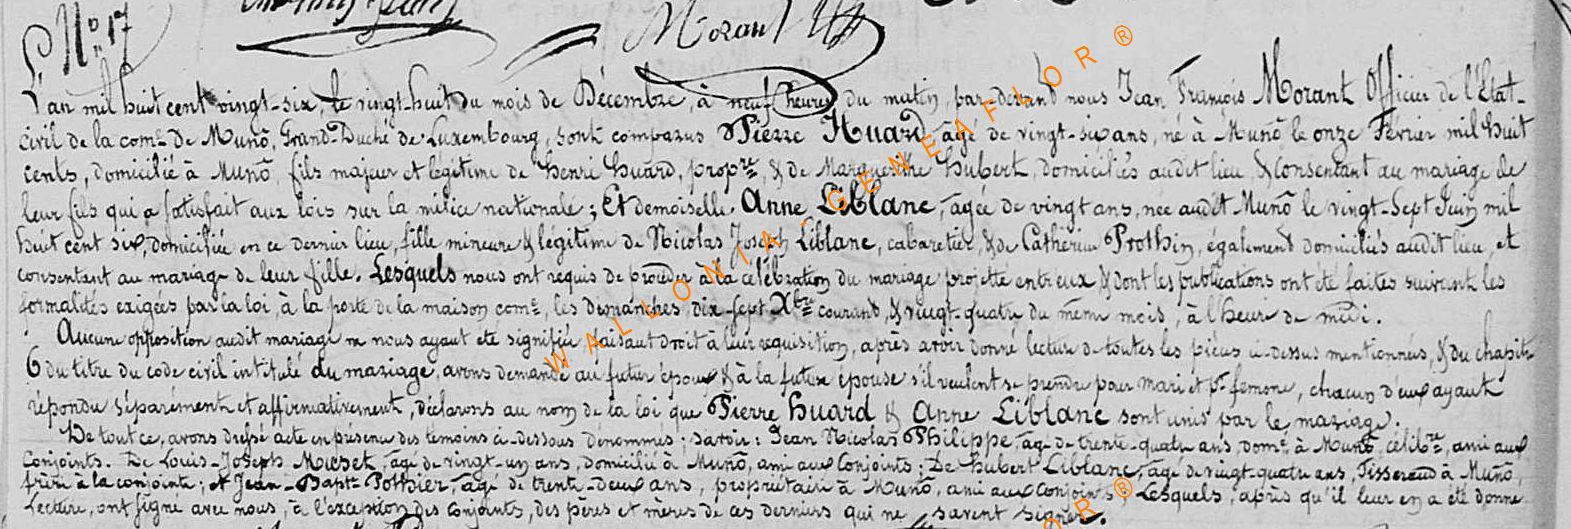 N° 17
Morant
L'an mil huit cent vingt-six, le vingt-huit du mois de Décembre, à neuf heures du matin, par-devant nous Jean François Morant Officier de l'Etat-
civil de la com^e de Munõ, Grand-Duché de Luxembourg, sont comparus Pierre Huard, âgé de vingt-six ans, né à Munõ le onze Février mil huit
cents, domicilié à Munõ, fils majeur et légitime de Henri Huard, prop^re, & de Marguerithe Hubert, domiciliés audit lieu, & consentant au mariage de
leur fils qui a satisfait aux lois sur la milice nationale; Et demoiselle Anne Liblanc, âgée de vingt ans, née audit Munõ le vingt-sept Juin mil
huit cent six, domiciliée en ce dernier lieu, fille mineure & légitime de Nicolas Joseph Liblanc, cabaretier, & de Catherine Prothin, également domiciliés audit lieu, et
consentant au mariage de leur fille. Lesquels nous ont requis de procéder à la célébration du mariage projetté entr'eux & dont les publications ont été faites suivant les
formalités exigées par la loi, à la porte de la maison com^e, les demanches dix-sept X^bre courant, & vingt-quatre du même mois, à l'heur de midi.
Aucune opposition audit mariage ne nous ayant été signifiée, faisant droit à leur réquisition, après avoir donné lecture de toutes les pièces ci-dessus mentionnées, & du chapitre
6 du titre du code civil intitulé du mariage, avons demandé au futur époux & à la future épouse s'il veulent se prendre pour mari et p^r femme, chacun d'eux ayant
répondu séparément et affirmativement, déclarons au nom de la loi que Pierre Huard & Anne Liblanc sont unis par le mariage.
De tout ce, avons dressé acte en présence des témoins ci-dessous dénommés; savoir: Jean Nicolas Philippe, âgé de trente-quatre ans, dom^é à Munõ, célib^re, ami aux
conjoints. De Louis-Joseph Micset, âgé de vingt-un ans, domicilié à Munõ, ami aux conjoints; De Hubert Liblanc, âgé de vingt-quatre ans, Tisserand à Munõ,
frère à la conjointe; et Jean-Bapt^e Pothier, âgé de trente-deux ans, propriétaire à Munõ, ami aux conjoints. Lesquels, après qu'il leur en a été donné
lecture, ont signé avec nous, à l'exception des conjoints, des pères et mères de ces derniers qui ne savent signer.
WALLONIA-GENEAFLOR®
OR®